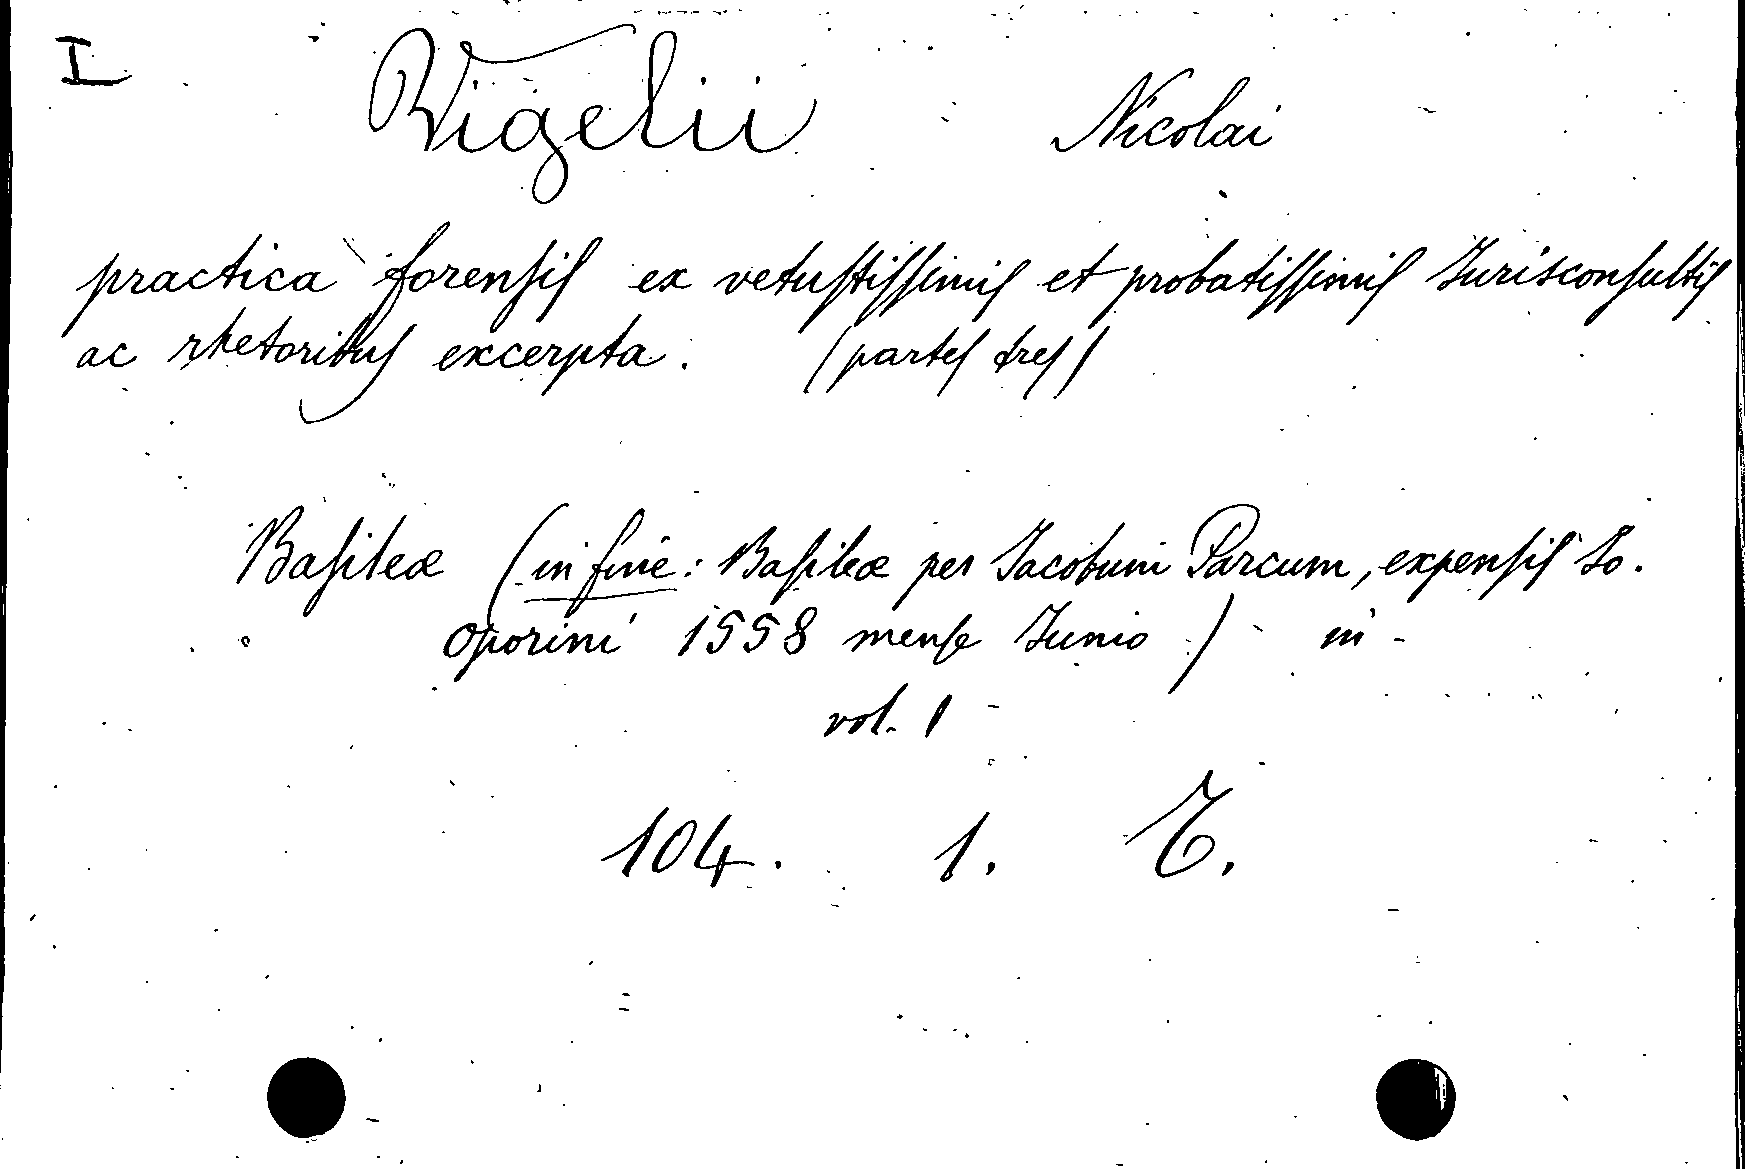 I
Vigelii Nicolai
practica forensis ex vetustissimis et probatissimis Jurisconsultis
ac rhetoribus excerpta. (partes tres)
Basileæ (in fine: Basileæ per Jacobum Parcum, expensis Jo.
Oporini 1558 mense Junio.) in -
vol. 1
104. 1. T.